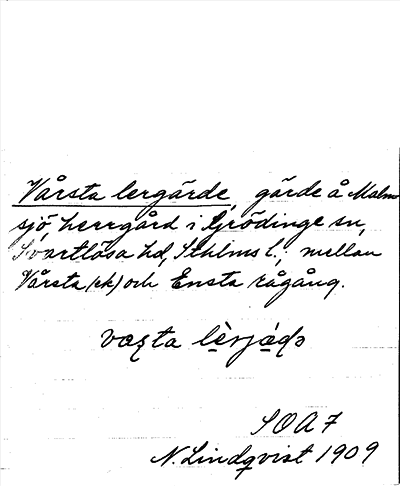 Vårsta lergärde, gärde å Malm
sjö, herrgård i Grödinge sn,
Svartlösa hd, Sthlms l.; mellan
Vårsta (ek) och Ensta rågång.
SOA 7
N. Lindqvist 1909